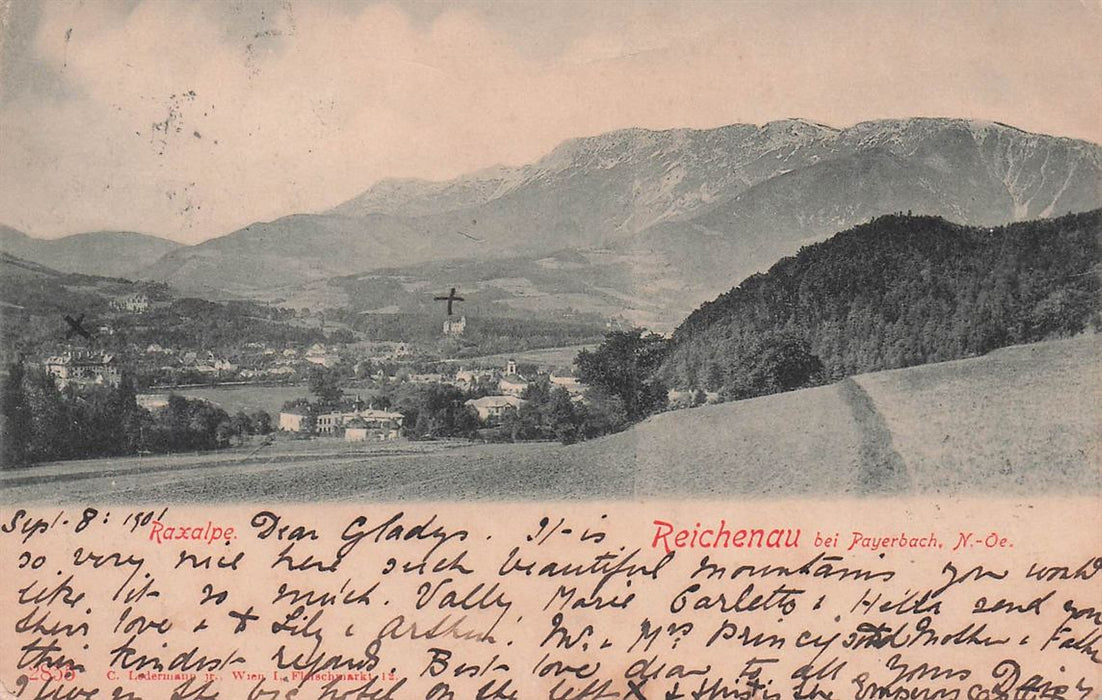 Sept. 8: 1901 Raxalpe. Dear Gladys. It is Reichenau bei Payerbach, N.-Oe.
so very nice here such beautiful mountains you would
like it so much. Vally, Marie Carletto & Hella send you
their love & + Lily & Arthur. Mr. & Mrs. and Mother & Father
their kindest regards. Best love dear to all Yours Daisy
2893 C. Ledermann jr., Wien I., Fleischmarkt 12.
I live in the big hotel on the left X & this is the